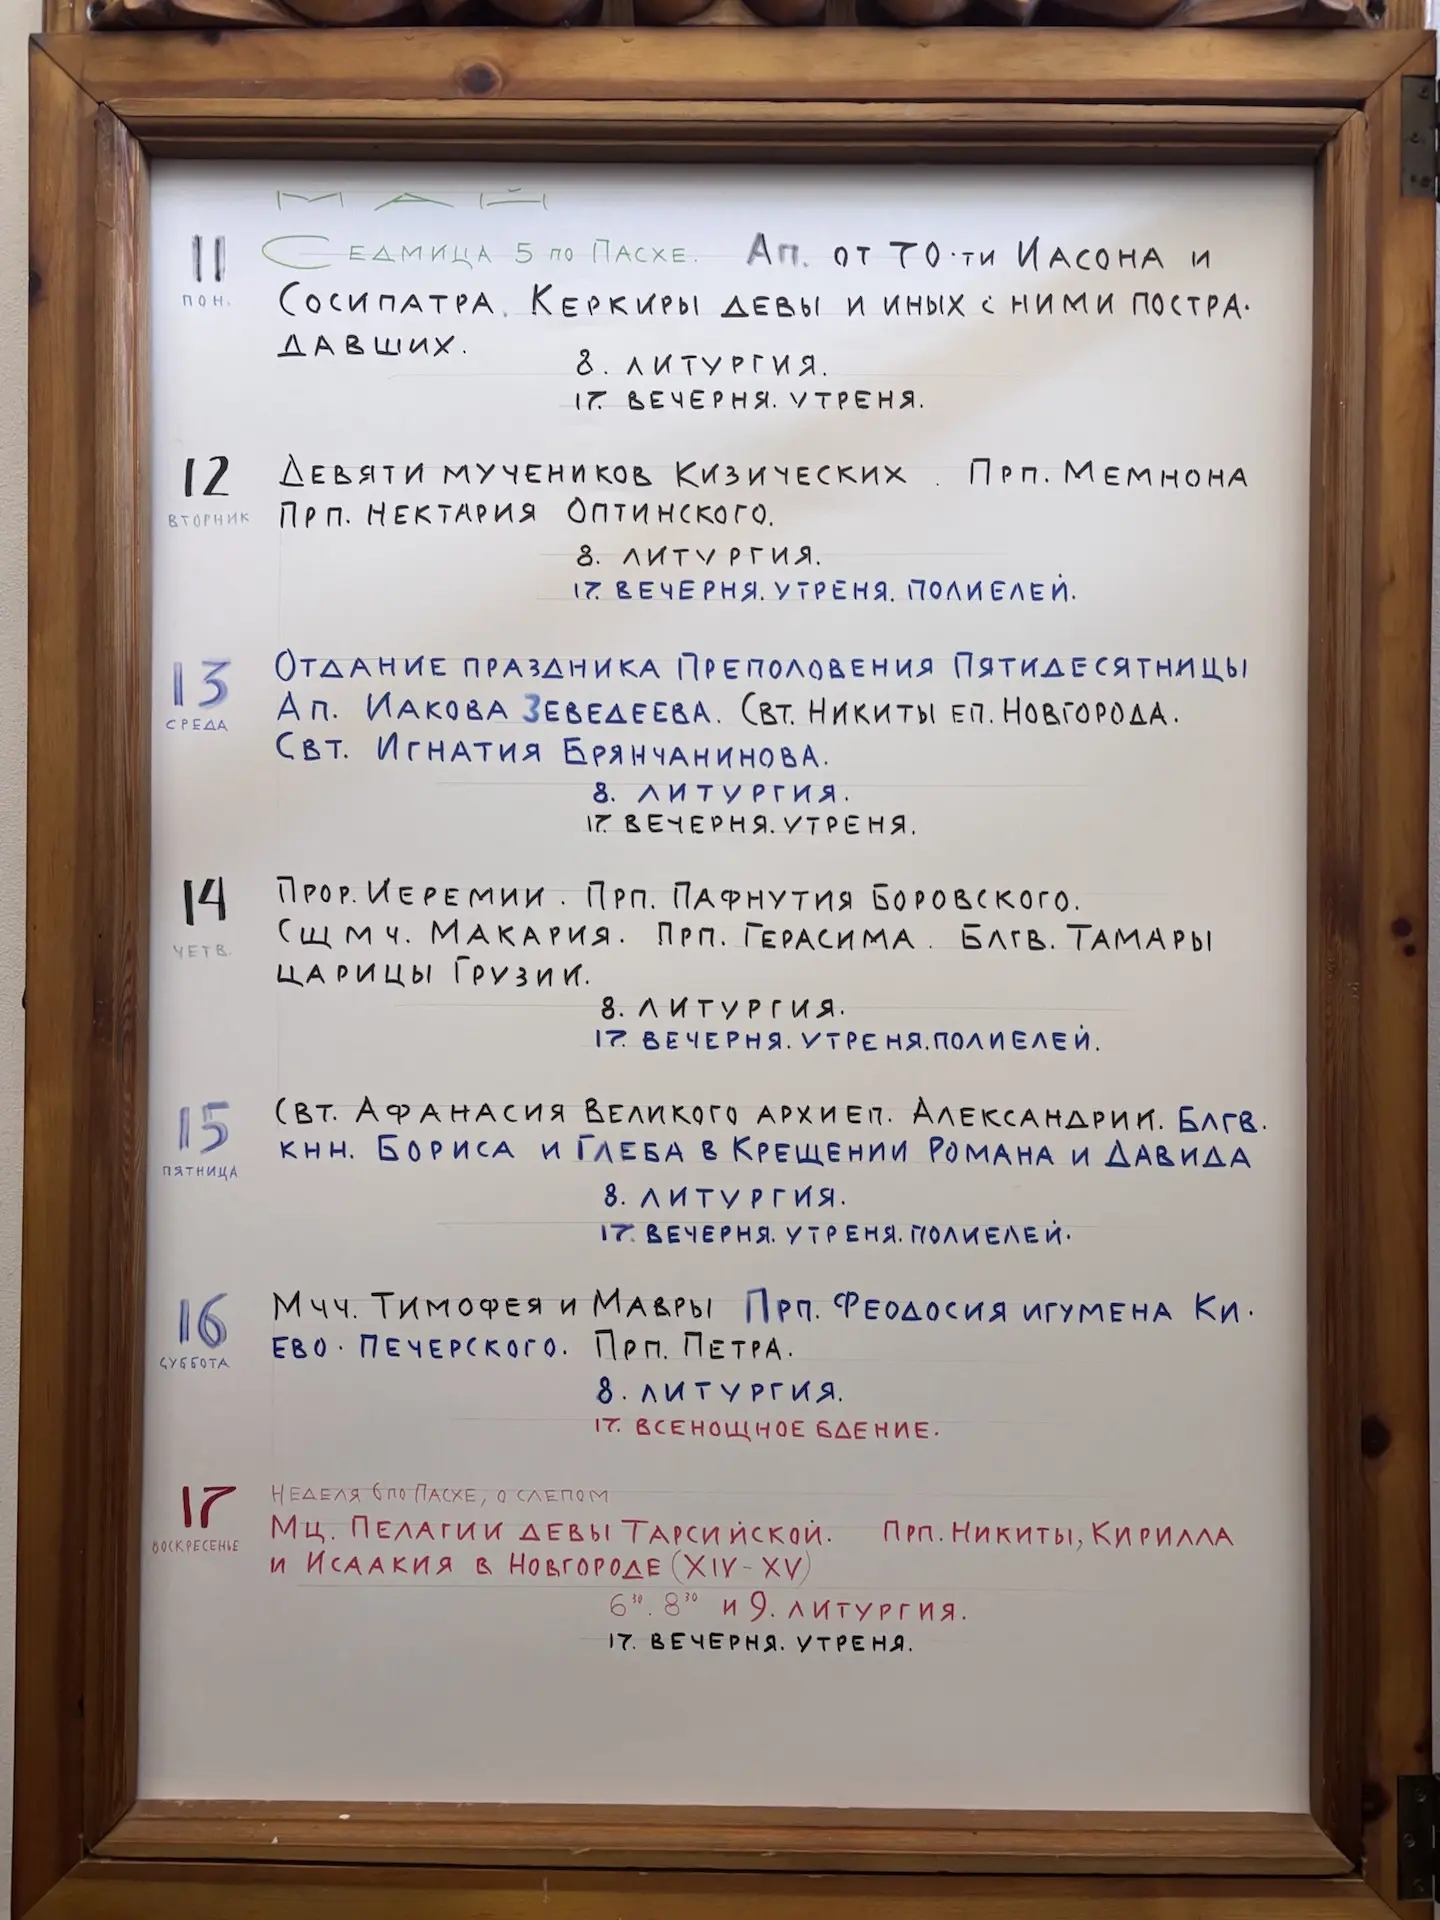 МАЙ
11 СЕДМИЦА 5 ПО ПАСХЕ. АП. ОТ 70·ТИ ИАСОНА И
ПОН. СОСИПАТРА. КЕРКИРЫ ДЕВЫ И ИНЫХ С НИМИ ПОСТРА·
ДАВШИХ.
8. ЛИТУРГИЯ.
17. ВЕЧЕРНЯ. УТРЕНЯ.
12 ДЕВЯТИ МУЧЕНИКОВ КИЗИЧЕСКИХ. ПРП. МЕМНОНА
ВТОРНИК ПРП. НЕКТАРИЯ ОПТИНСКОГО.
8. ЛИТУРГИЯ.
17. ВЕЧЕРНЯ. УТРЕНЯ. ПОЛИЕЛЕЙ.
13 ОТДАНИЕ ПРАЗДНИКА ПРЕПОЛОВЕНИЯ ПЯТИДЕСЯТНИЦЫ
СРЕДА АП. ИАКОВА ЗЕВЕДЕЕВА. СВТ. НИКИТЫ ЕП. НОВГОРОДА.
СВТ. ИГНАТИЯ БРЯНЧАНИНОВА.
8. ЛИТУРГИЯ.
17. ВЕЧЕРНЯ. УТРЕНЯ.
14 ПРОР. ИЕРЕМИИ. ПРП. ПАФНУТИЯ БОРОВСКОГО.
ЧЕТВ. СЩМЧ. МАКАРИЯ. ПРП. ГЕРАСИМА. БЛГВ. ТАМАРЫ
ЦАРИЦЫ ГРУЗИИ.
8. ЛИТУРГИЯ.
17. ВЕЧЕРНЯ. УТРЕНЯ. ПОЛИЕЛЕЙ.
15 СВТ. АФАНАСИЯ ВЕЛИКОГО АРХИЕП. АЛЕКСАНДРИИ. БЛГВ.
ПЯТНИЦА КНН. БОРИСА И ГЛЕБА В КРЕЩЕНИИ РОМАНА И ДАВИДА
8. ЛИТУРГИЯ.
17. ВЕЧЕРНЯ. УТРЕНЯ. ПОЛИЕЛЕЙ.
16 МЧЧ. ТИМОФЕЯ И МАВРЫ ПРП. ФЕОДОСИЯ ИГУМЕНА КИ·
СУББОТА ЕВО·ПЕЧЕРСКОГО. ПРП. ПЕТРА.
8. ЛИТУРГИЯ.
17. ВСЕНОЩНОЕ БДЕНИЕ.
17 НЕДЕЛЯ 6 ПО ПАСХЕ, О СЛЕПОМ
ВОСКРЕСЕНЬЕ МЦ. ПЕЛАГИИ ДЕВЫ ТАРСИЙСКОЙ. ПРП. НИКИТЫ, КИРИЛЛА
И ИСААКИЯ В НОВГОРОДЕ (XIV-XV)
6³⁰. 8³⁰ И 9. ЛИТУРГИЯ.
17. ВЕЧЕРНЯ. УТРЕНЯ.